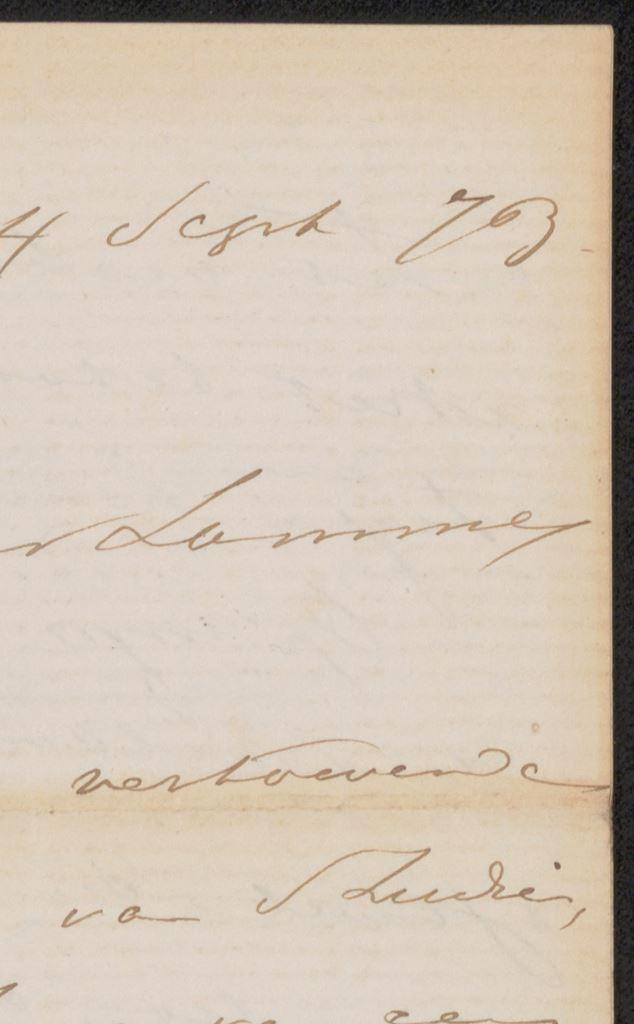 4 Sept 73
Lommer
vertoevende
van Studie,